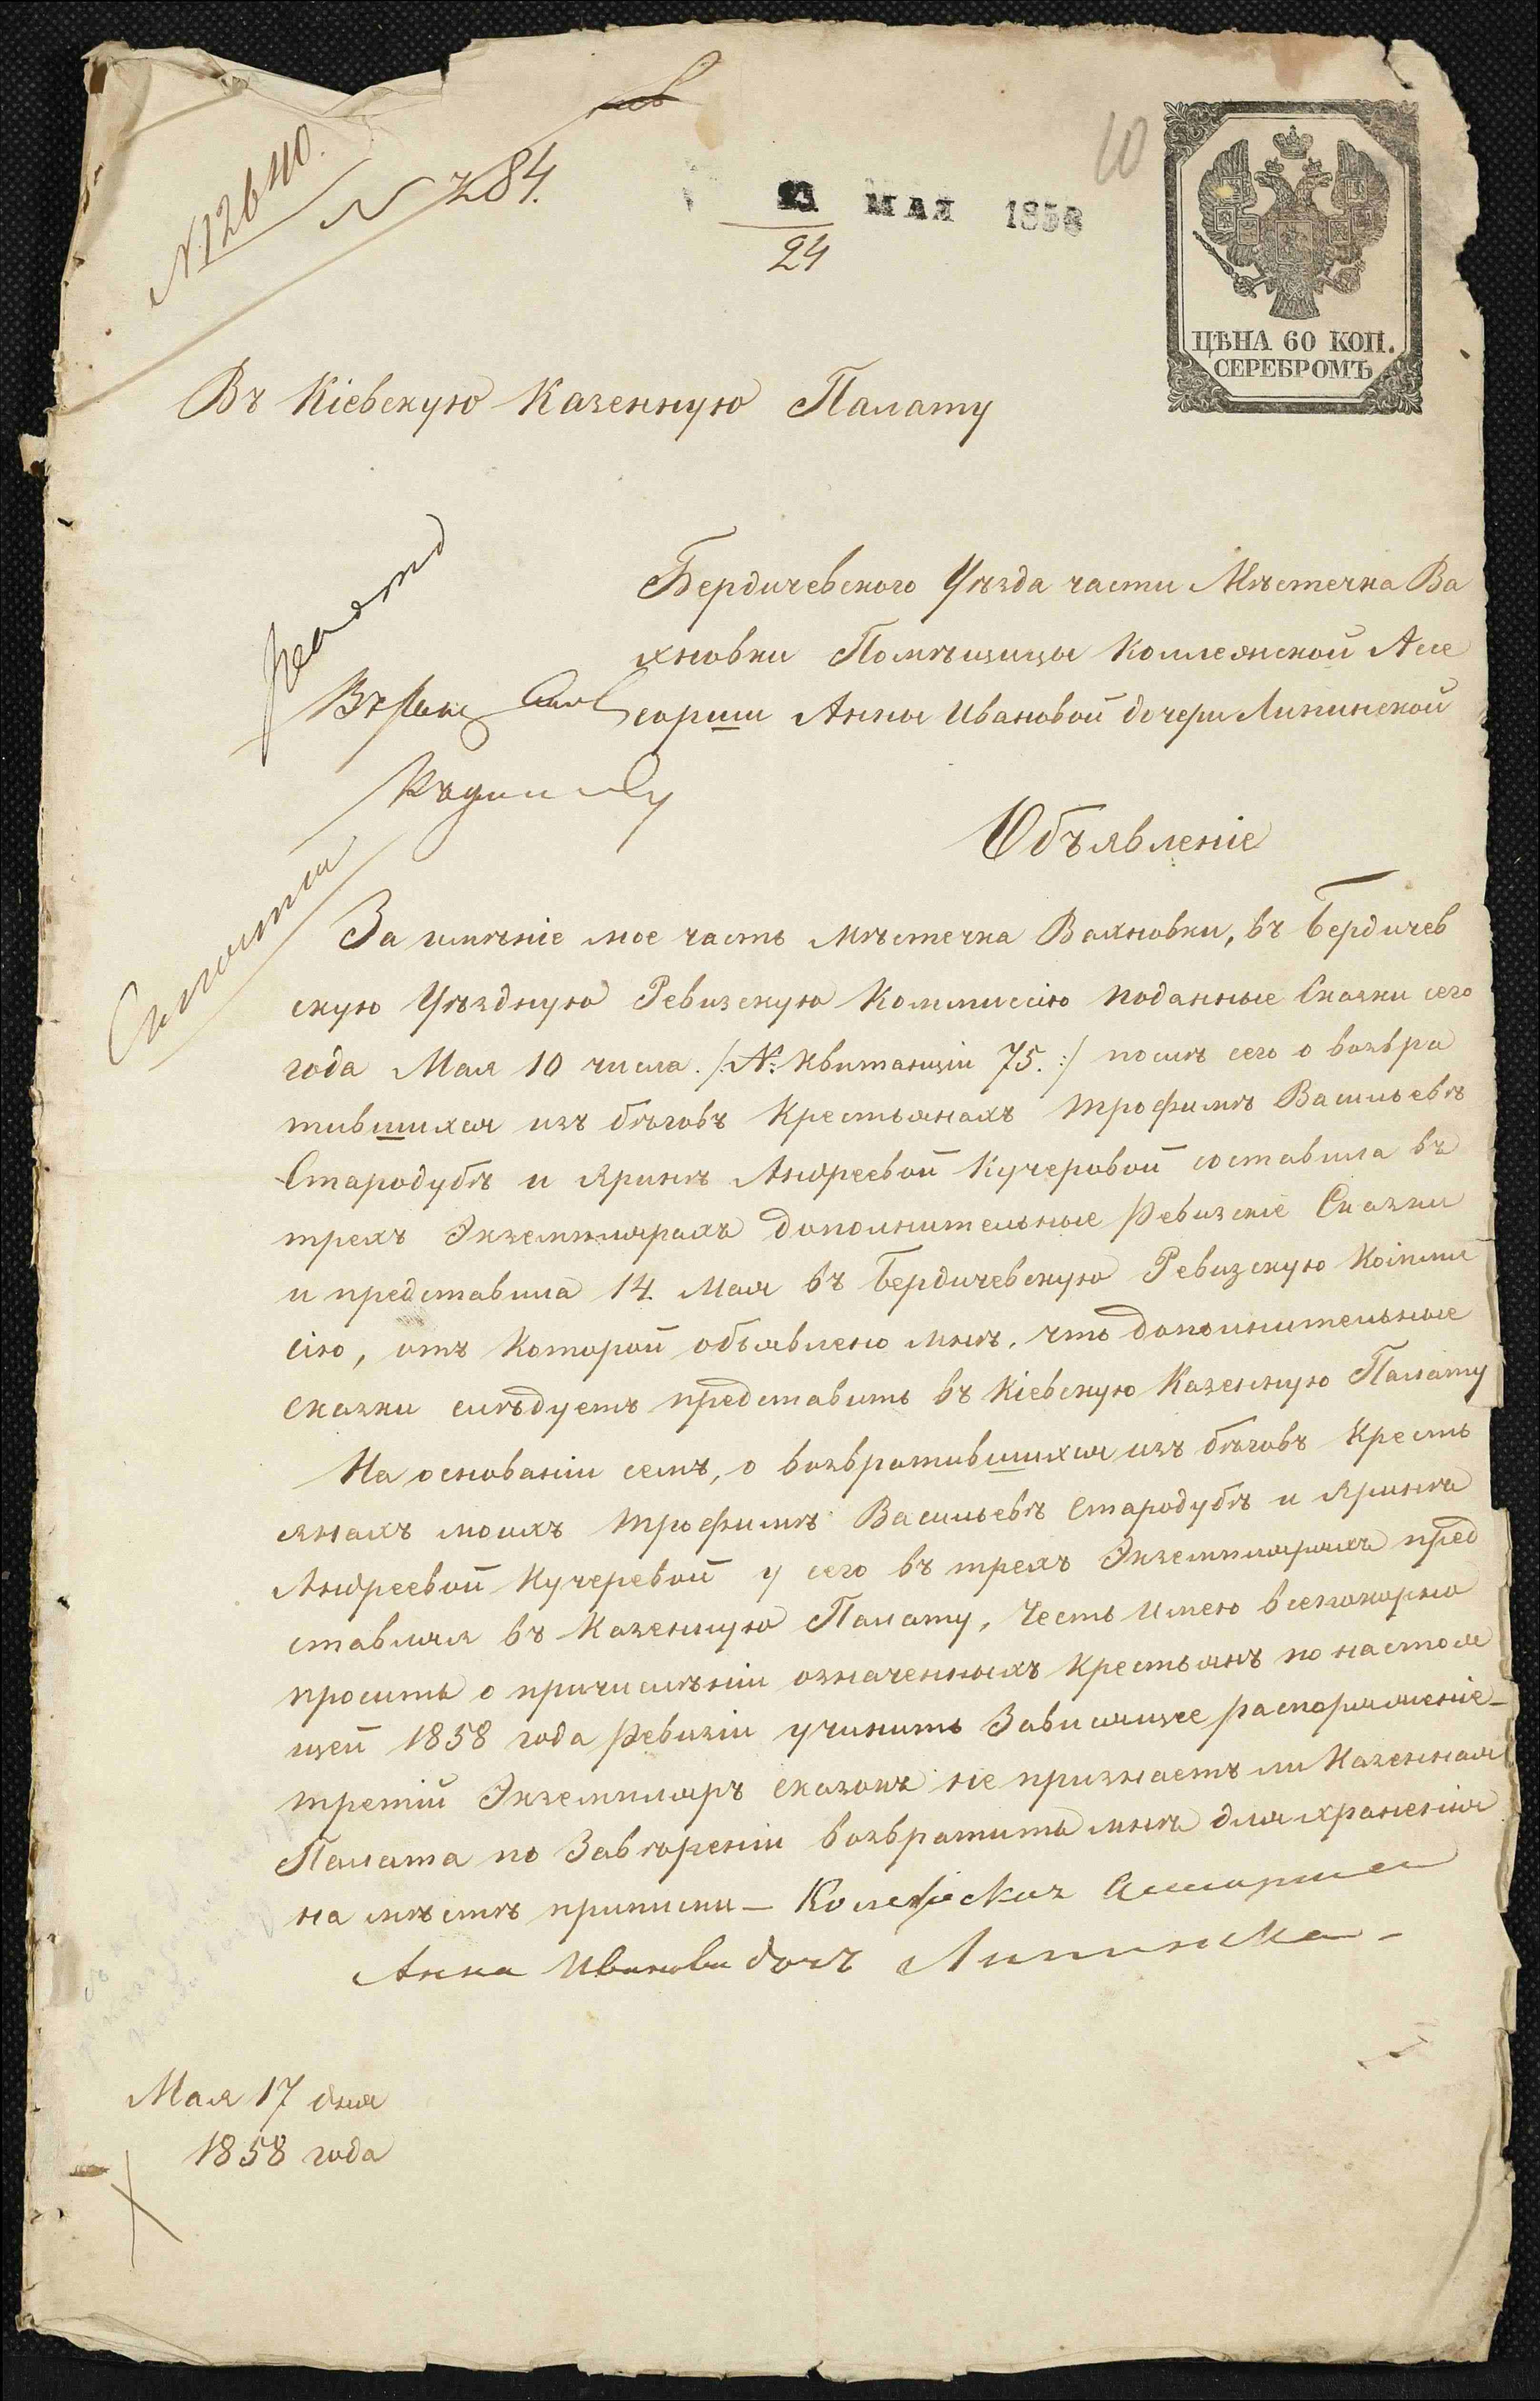 № 12640.
№ 284.
10
МАЯ 1858
24
ЦѢНА 60 КОП.
СЕРЕБРОМЪ
Въ Кіевскую Казенную Палату
Бердичевского Уѣзда части Мѣстечка Ва
хновки Помѣщицы Коллежской Ассе
сорши Анны Ивановой дочери Липинской
Объявленіе
За имѣніе мое часть мѣстечка Вахновки, въ Бердичев
скую Уѣздную Ревизскую Коммиссію поданные Сказки сего
года Мая 10 числа /:№ квитанціи 75.:/ послѣ сего о возвра
тившихся изъ бѣговъ Крестьянахъ Трофимѣ Васильевѣ
Стародубѣ и Яринѣ Андреевой Кучеровой составила въ
трехъ Экземплярахъ дополнительные Ревизскіе Сказки
и представила 14 Мая въ Бердичевскую Ревизскую Комми
сію, отъ Которой объявлено мнѣ, что дополнительные
сказки слѣдуетъ представить въ Кіевскую Казенную Палату
На основаніи семъ, о возвратившихся изъ бѣговъ Кресть
янахъ моихъ Трофимѣ Васильевѣ Стародубѣ и Яринѣ
Андреевой Кучеревой у сего въ трехъ Экземплярахъ пред
ставляя въ Казенную Палату, Честь Имею всепокорно
просить о причислѣніи означенныхъ Крестьянъ по настоя
щей 1858 года Ревизіи учинить Зависящее распоряженіе_
третій Экземпляръ сказокъ не признаетъ ли Казенная
Палата по Завѣреніи возвратить мнѣ для храненія
на мѣстѣ приписки – Колежска Ассорша
Анна Иванова дочъ Липинска –
Мая 17 дня
1858 года